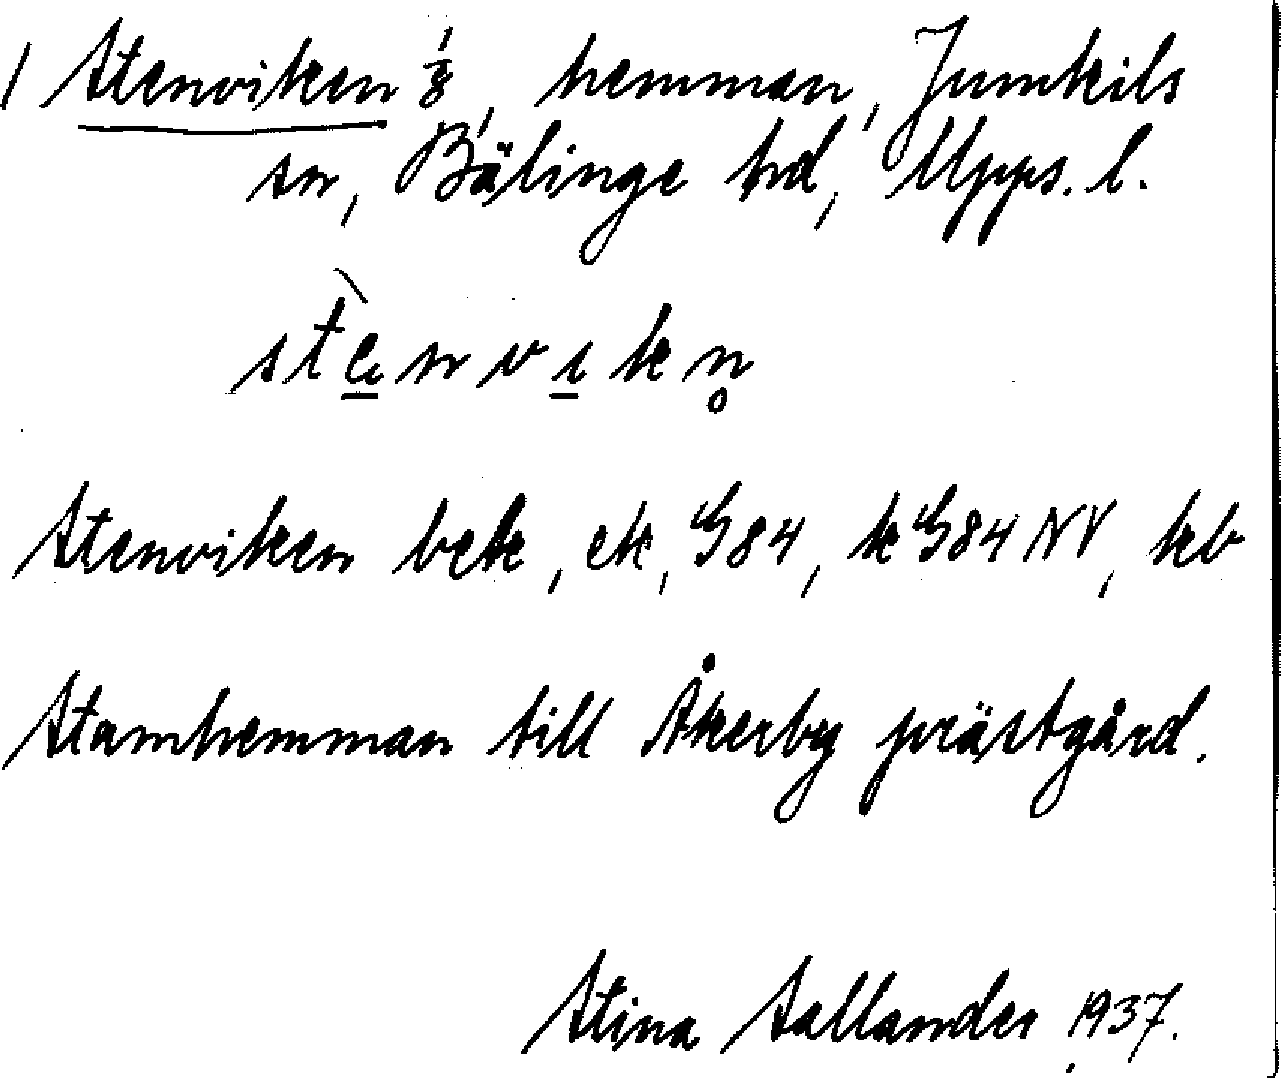 1 Stenviken 1/8, hemman, Jumkils
sn, Bälinge hd, Upps. l.
stènvikn̥
Stenviken bek, ek, G84, kG84NV, kb
Stamhemman till Åkerby prästgård.
Stina Sallander 1937.